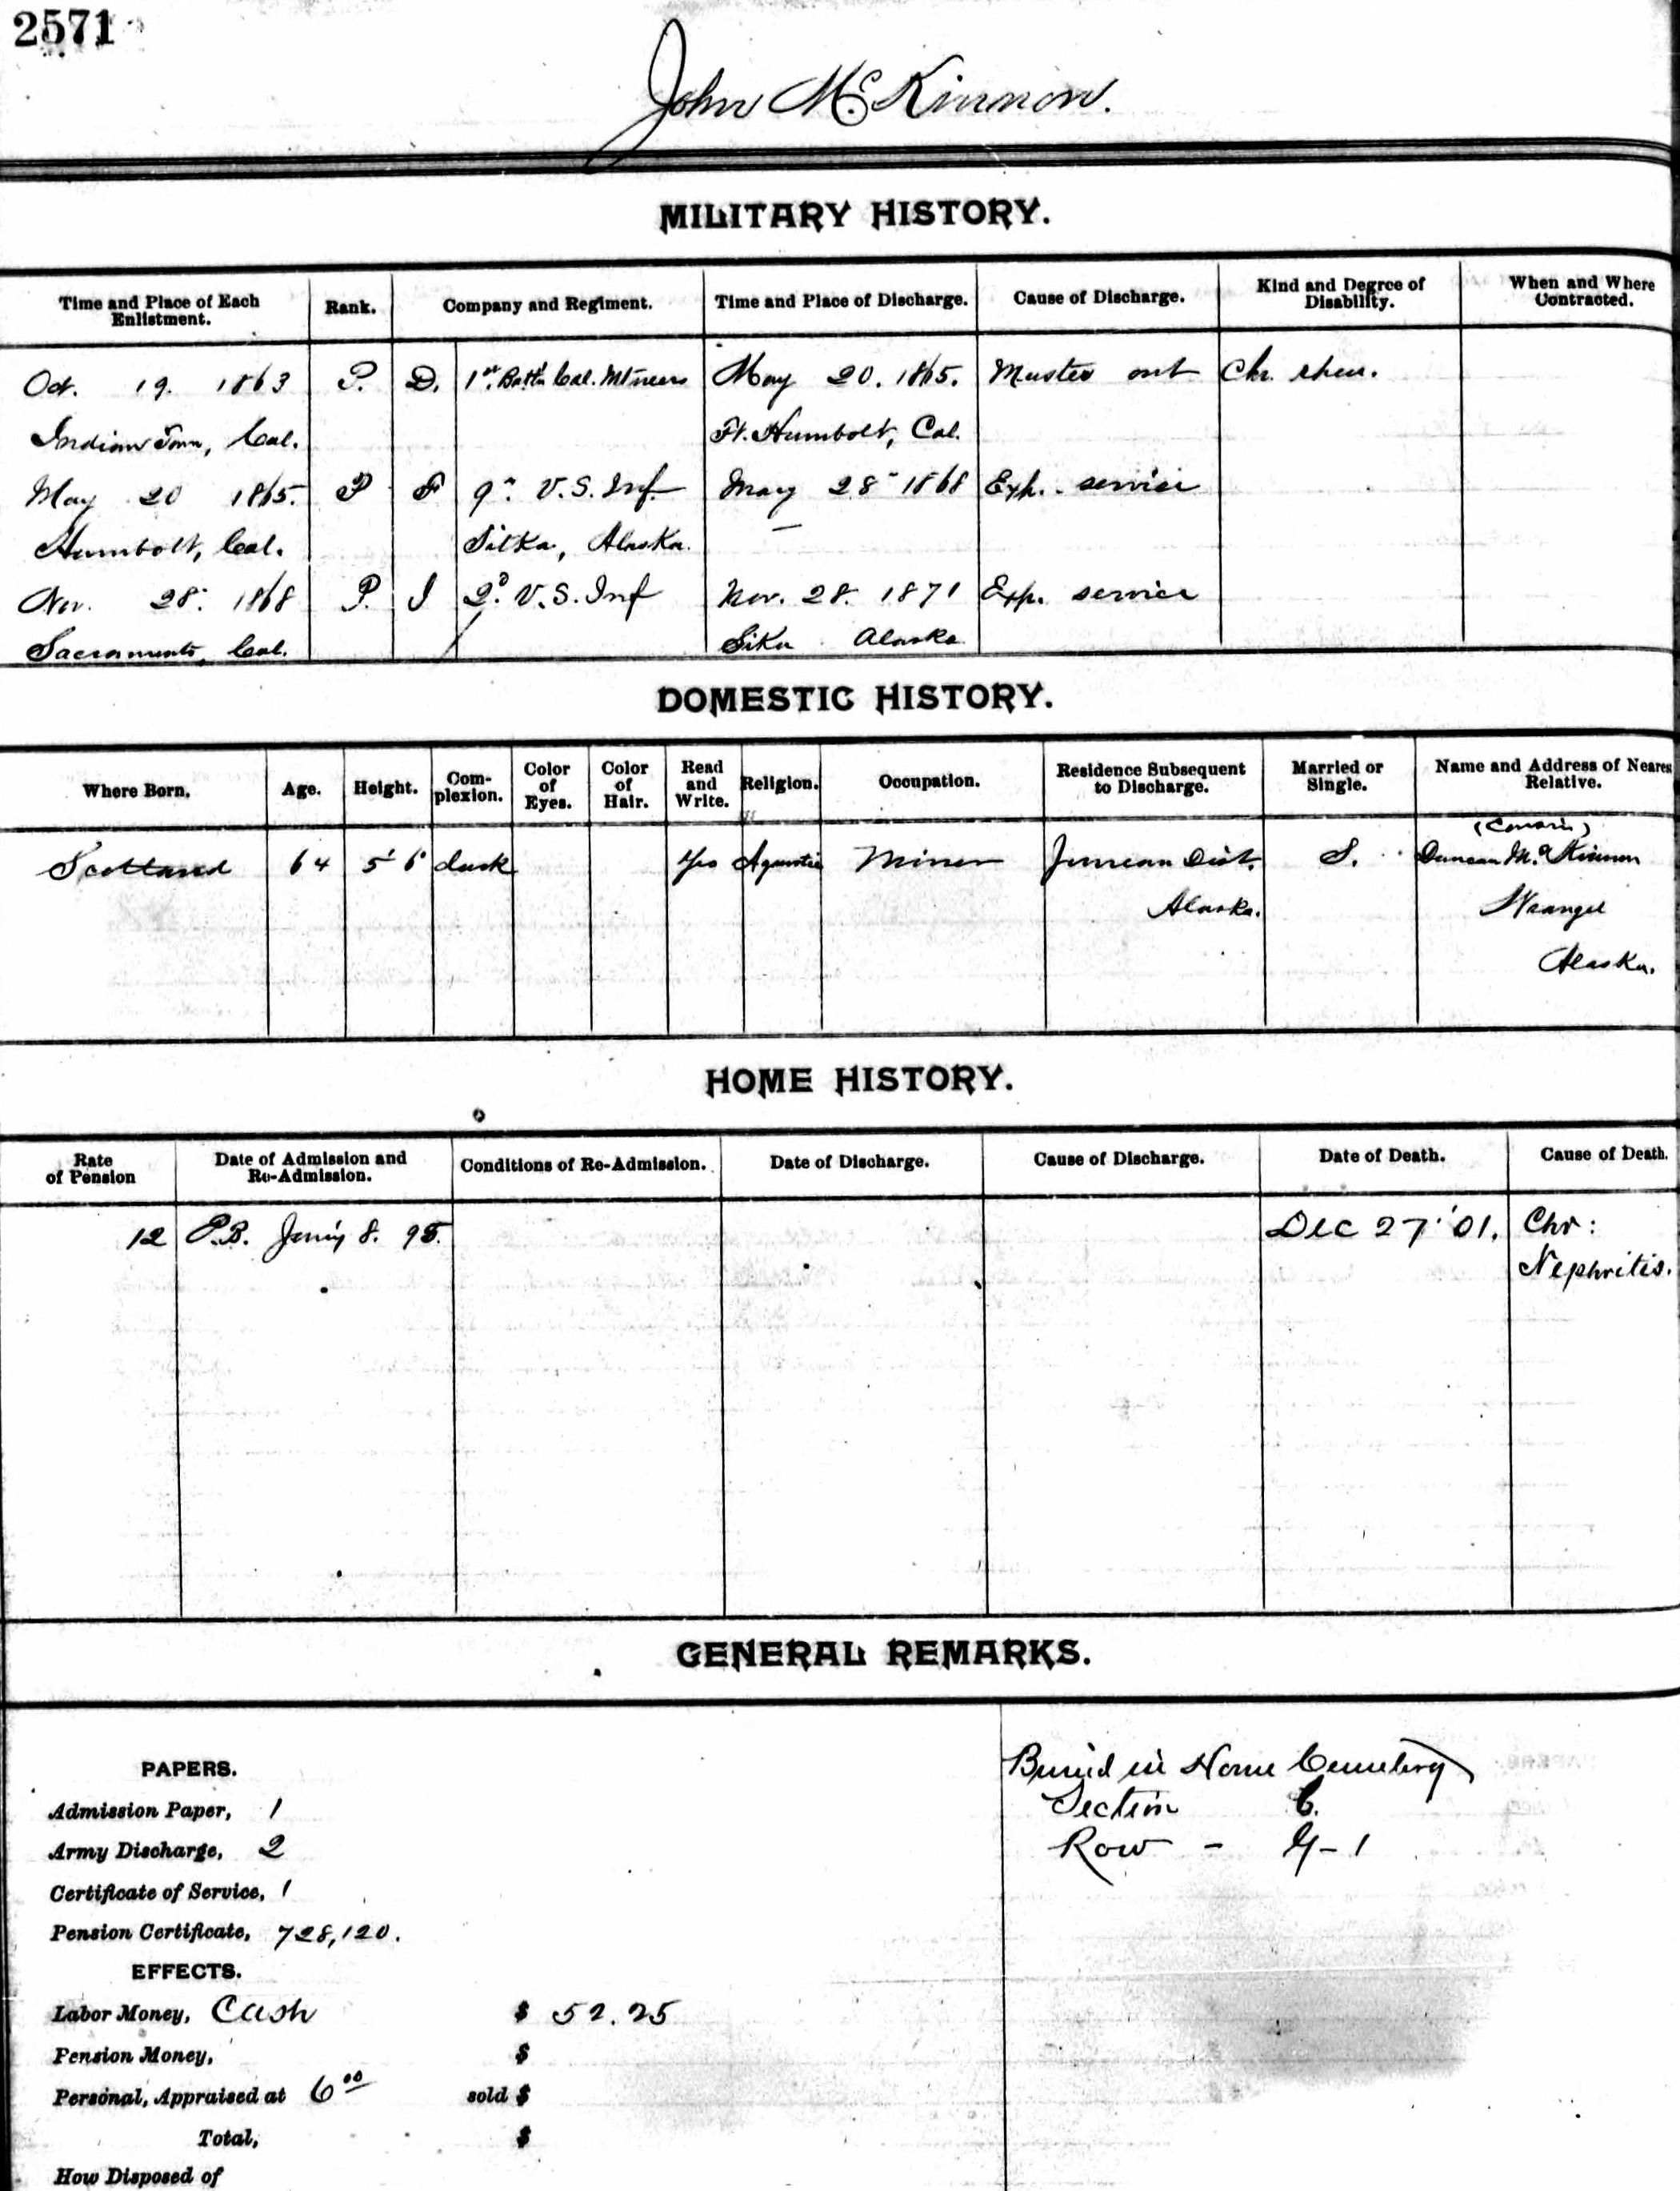 2571
John McKinnon.
MILITARY HISTORY.
Time and Place of Each Enlistment. Rank. Company and Regiment. Time and Place of Discharge. Cause of Discharge. Kind and Degree of Disability. When and Where Contracted.
Oct. 19. 1863 P. D. 1st Batt'n Cal. Mt'neers May 20. 1865. Muster out Chr. rheu.
Indian Town, Cal. Ft. Humbolt, Cal.
May 20 1865. P F 9" U.S. Inf. May 28" 1868 Exp. service
Humbolt, Cal. Sitka, Alaska.
Nov. 28. 1868 P. I 2d U.S. Inf Nov. 28. 1871 Exp. service
Sacramento, Cal. Sika Alaska
DOMESTIC HISTORY.
Where Born. Age. Height. Complexion. Color of Eyes. Color of Hair. Read and Write. Religion. Occupation. Residence Subsequent to Discharge. Married or Single. Name and Address of Neares Relative.
(Cousin)
Scotland 64 5' 6" dark yes Miner Juneau Dist. S. Duncan McKinnon
Alaska. Wrangel
Alaska.
HOME HISTORY.
Rate of Pension Date of Admission and Re-Admission. Conditions of Re-Admission. Date of Discharge. Cause of Discharge. Date of Death. Cause of Death.
12 P.B. 8. 95. Dec 27 '01. Chr:
Nephritis.
GENERAL REMARKS.
PAPERS. Buried in Home Cemetery
Admission Paper, 1 Section C.
Army Discharge, 2 Row - G-1
Certificate of Service, 1
Pension Certificate, 728,120.
EFFECTS.
Labor Money, Cash $ 52.25
Pension Money, $
Personal, Appraised at 6 00 sold $
Total, $
How Disposed of